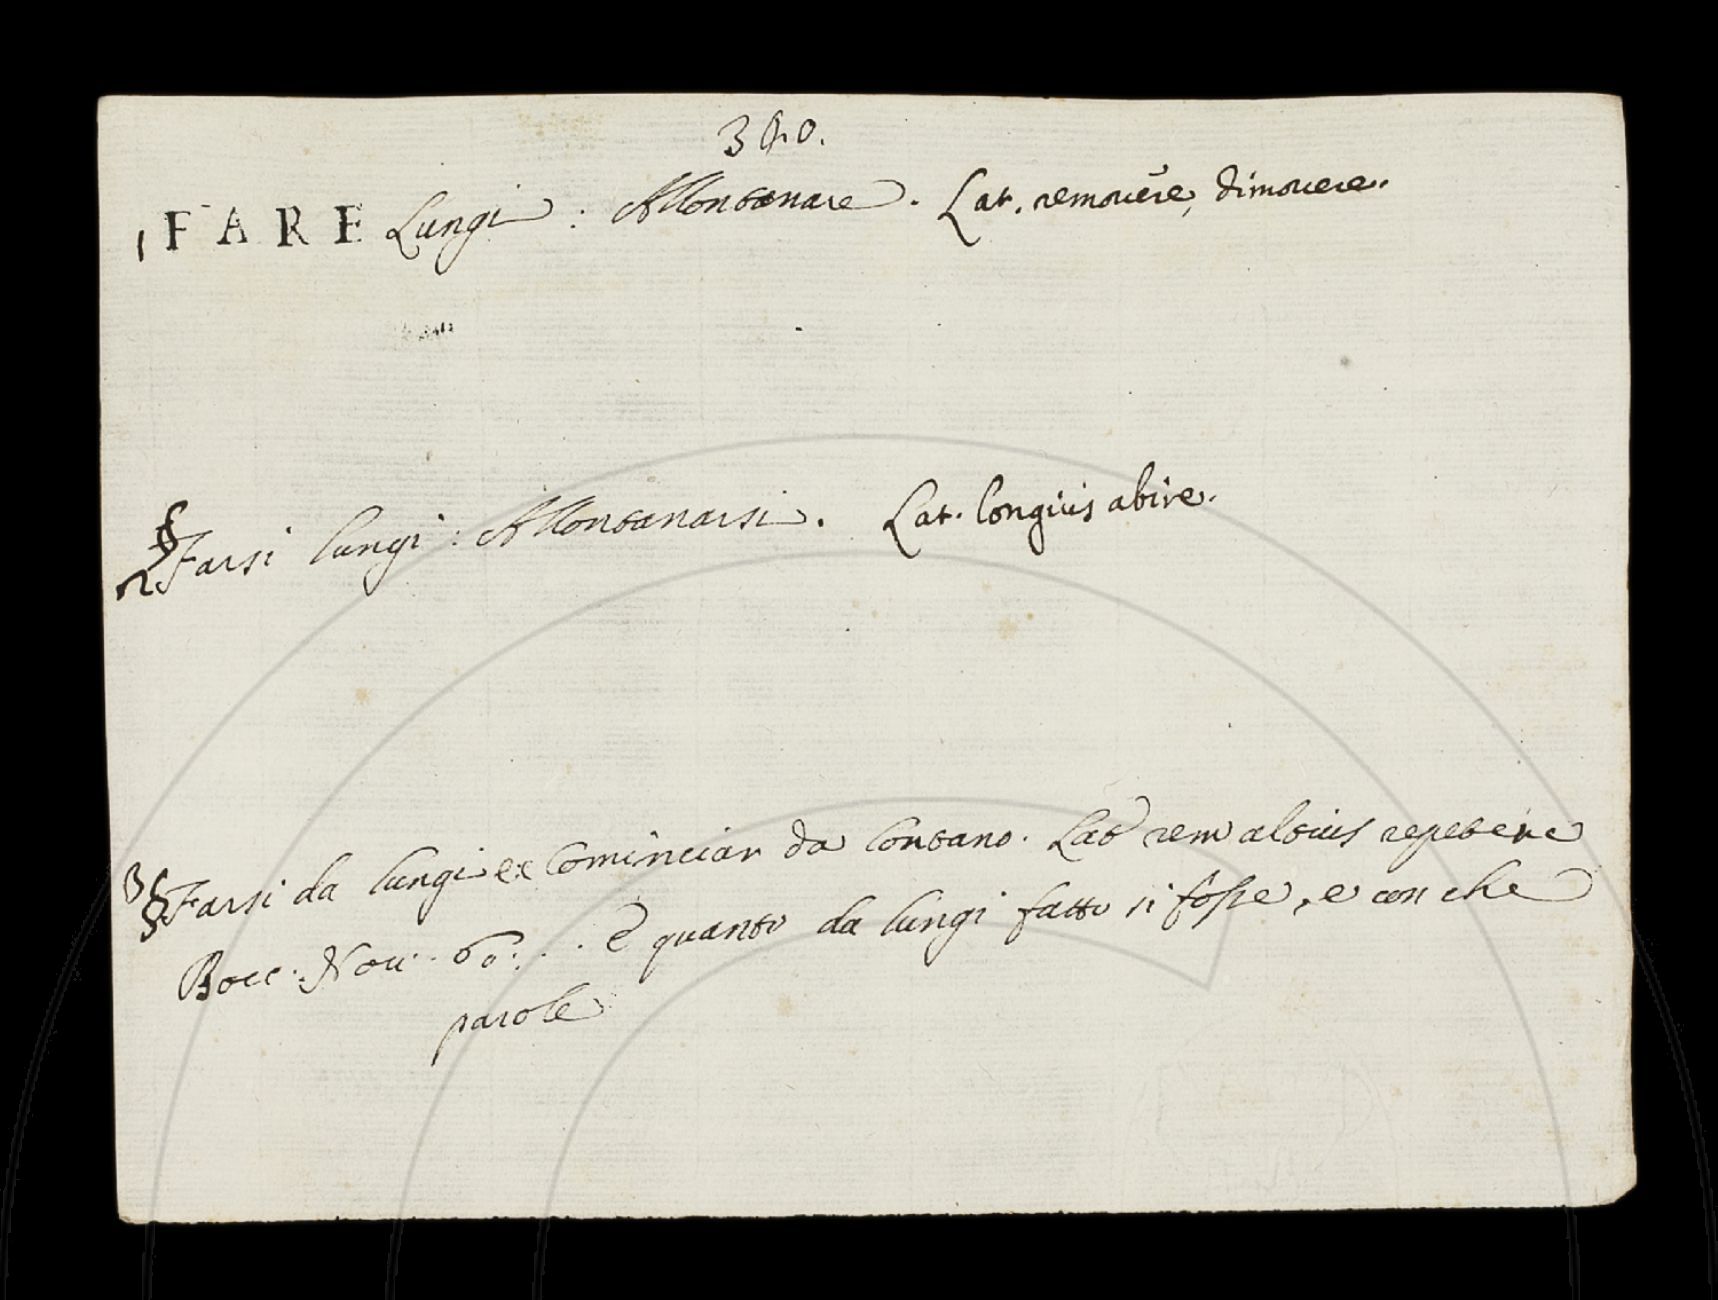 340.
1 FARE Lungi : Allontanare. Lat. removēre, dimovere.
§
2 Farsi lungi : Allontanarsi. Lat. longiùs abire.
3 § Farsi da lungi è Cominciar da lontano. Lat rem altius repetere
Bocc. Nov. 60. . . E quanto da lungi fatto si fosse, e con che
parole